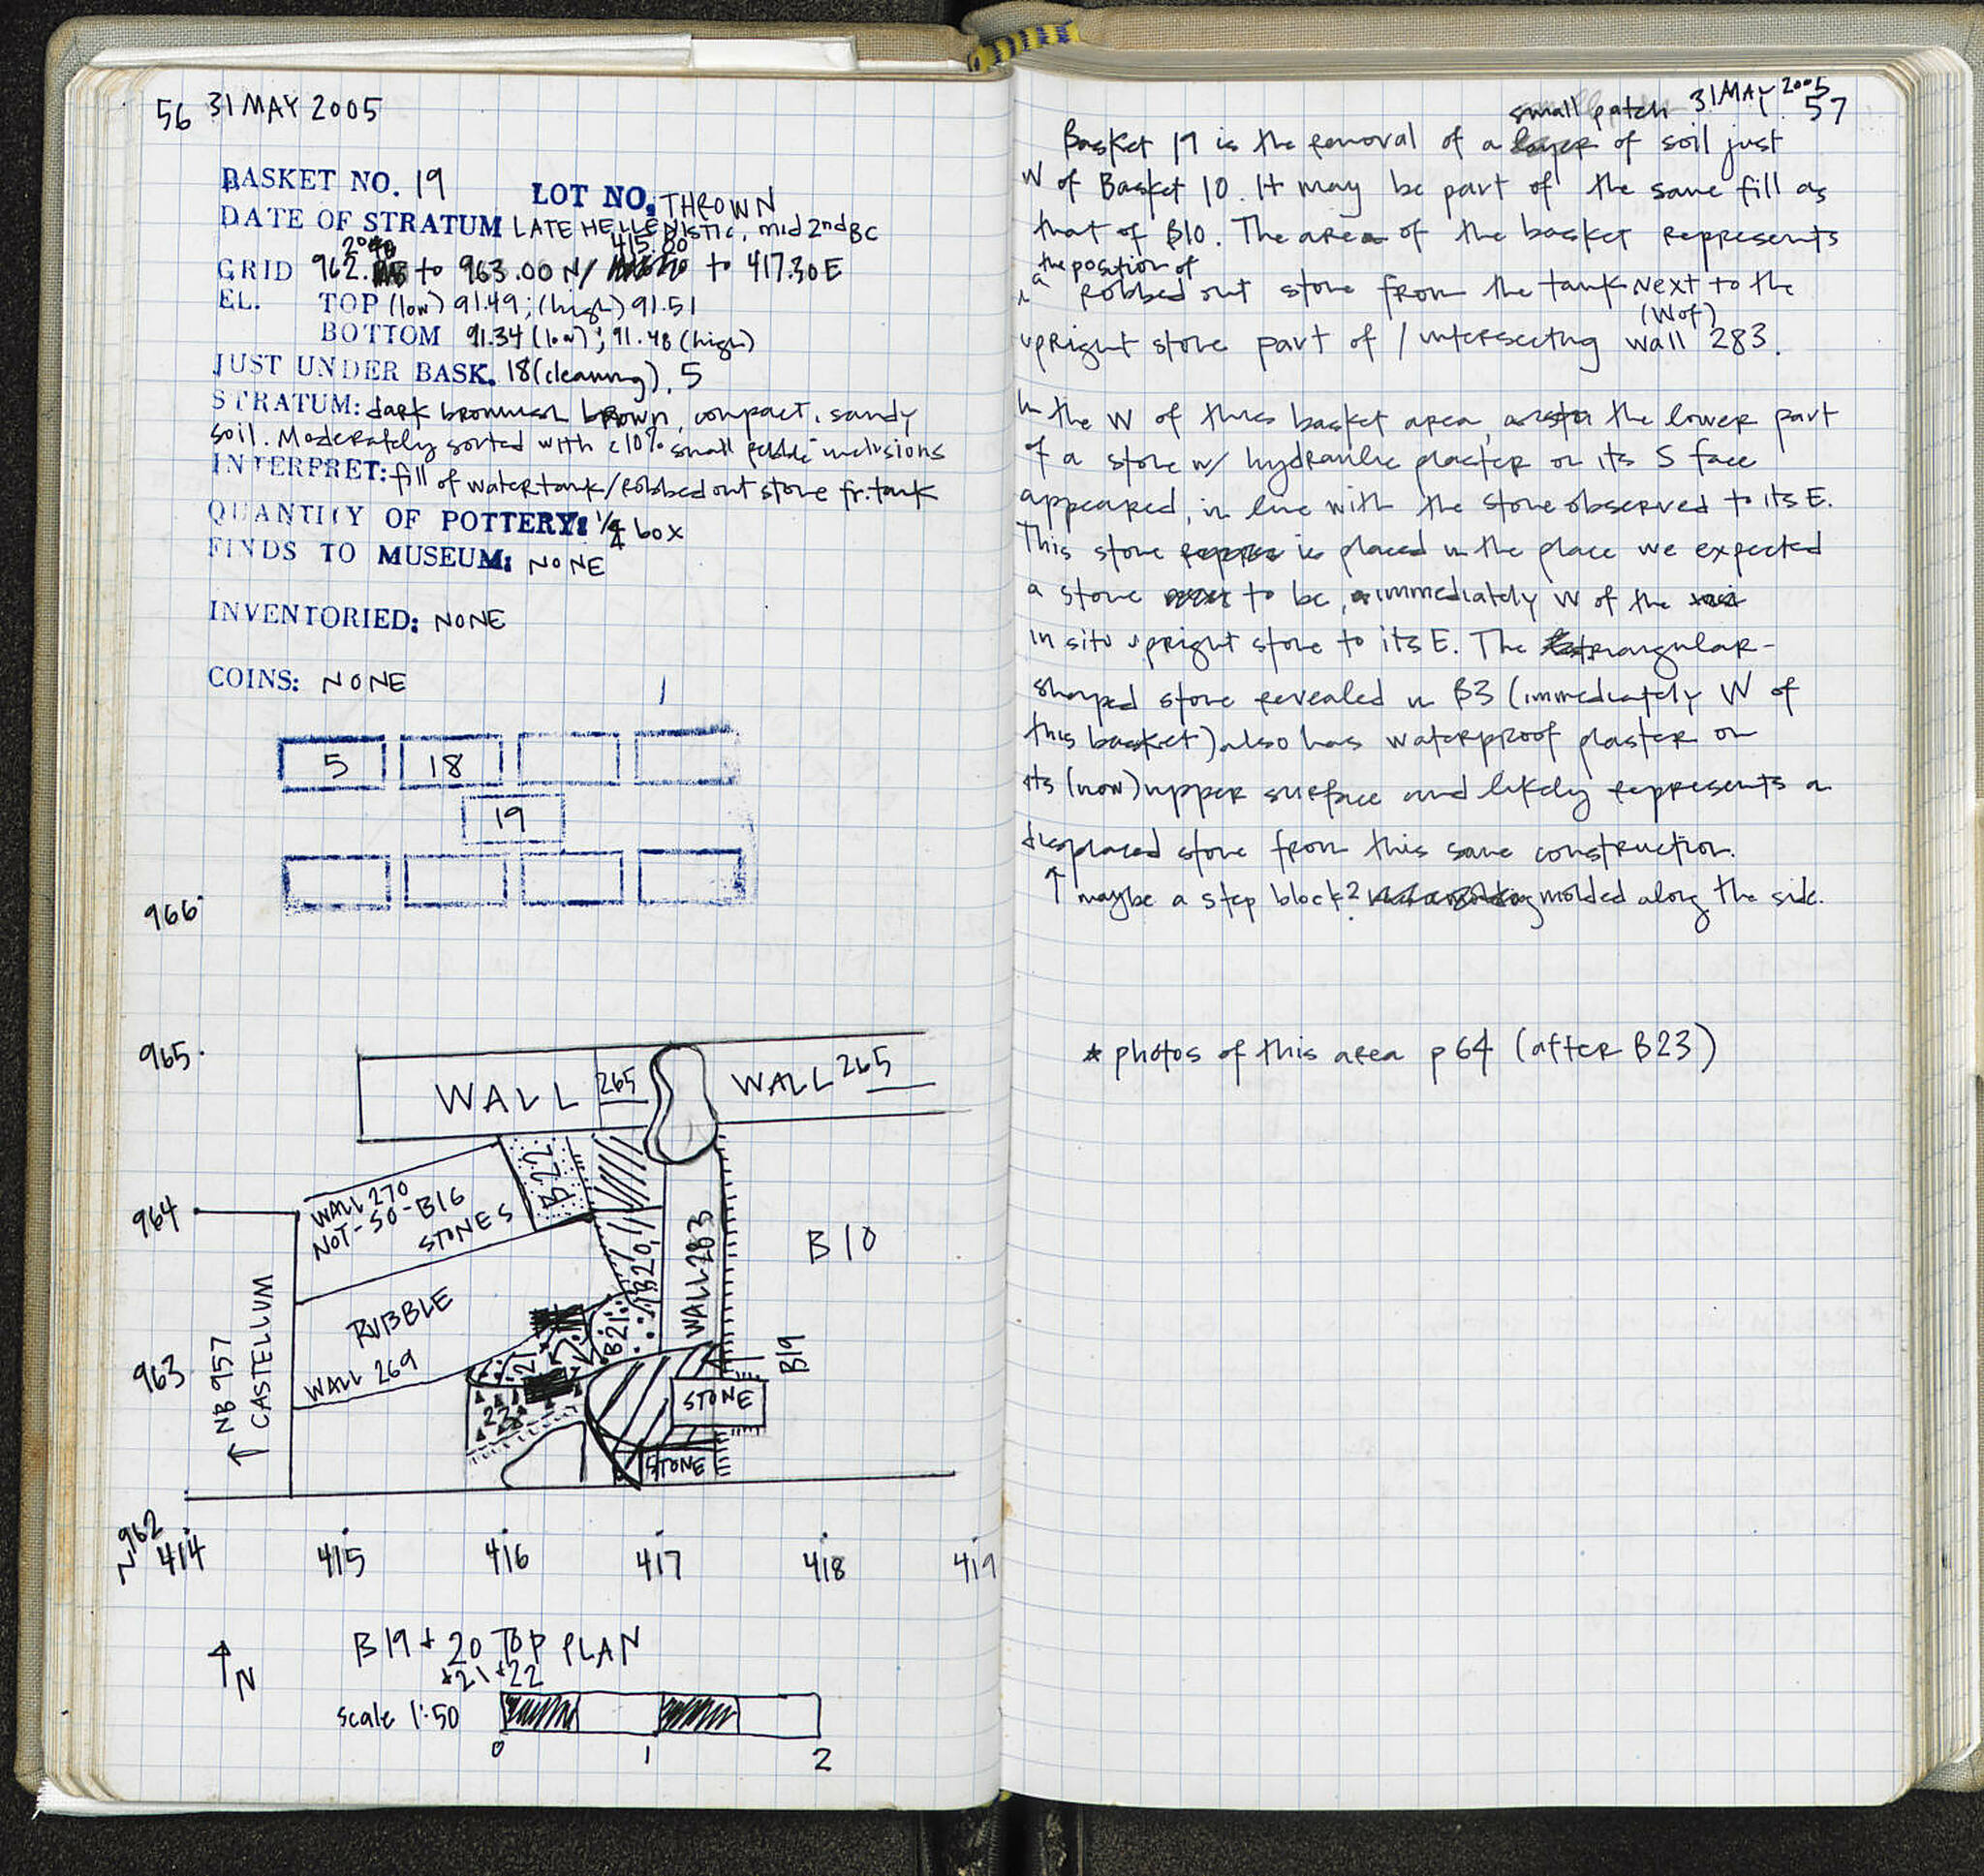 56 31 MAY 2005
BASKET NO. 19 LOT NO. THROWN
DATE OF STRATUM LATE HELLENISTIC, mid 2nd BC
415.80
GRID 962. to 963.00 N/ to 417.30 E
EL. TOP (low) 91.49; (high) 91.51
BOTTOM 91.34 (low); 91.48 (high)
JUST UNDER BASK. 18 (cleaning), 5
STRATUM: dark brownish brown, compact, sandy
soil. Moderately sorted with <10% small pebble inclusions
INTERPRET: fill of water tank/robbed out stone fr. tank
QUANTITY OF POTTERY: 1/4 box
FINDS TO MUSEUM: NONE
INVENTORIED: NONE
COINS: NONE
5 18
19
966
965
WALL 265 WALL 265
964
WALL 270
NOT-SO-BIG
STONES
B22
B20
WALL 283
B10
RUBBLE
WALL 269
B21
21
B19
963
↑ NB 957
CASTELLUM
23
STONE
STONE
N 962
414 415 416 417 418 419
↑N
B19 + 20 TOP PLAN
+21 +22
scale 1:50
0 1 2
31 MAY 2005
57
small patch
Basket 19 is the removal of a layer of soil just
W of Basket 10. It may be part of the same fill as
that of B10. The area of the basket represents
the position of
a robbed out stone from the tank next to the
(W of)
upright stone part of / intersecting wall 283.
In the W of this basket area, the lower part
of a stone w/ hydraulic plaster on its S face
appeared, in line with the stone observed to its E.
This stone is placed in the place we expected
a stone to be, immediately W of the
in situ upright stone to its E. The triangular-
shaped stone revealed in B3 (immediately W of
this basket) also has waterproof plaster on
its (now) upper surface and likely represents a
displaced stone from this same construction.
↑ maybe a step block? molded along the side.
* photos of this area p 64 (after B23)